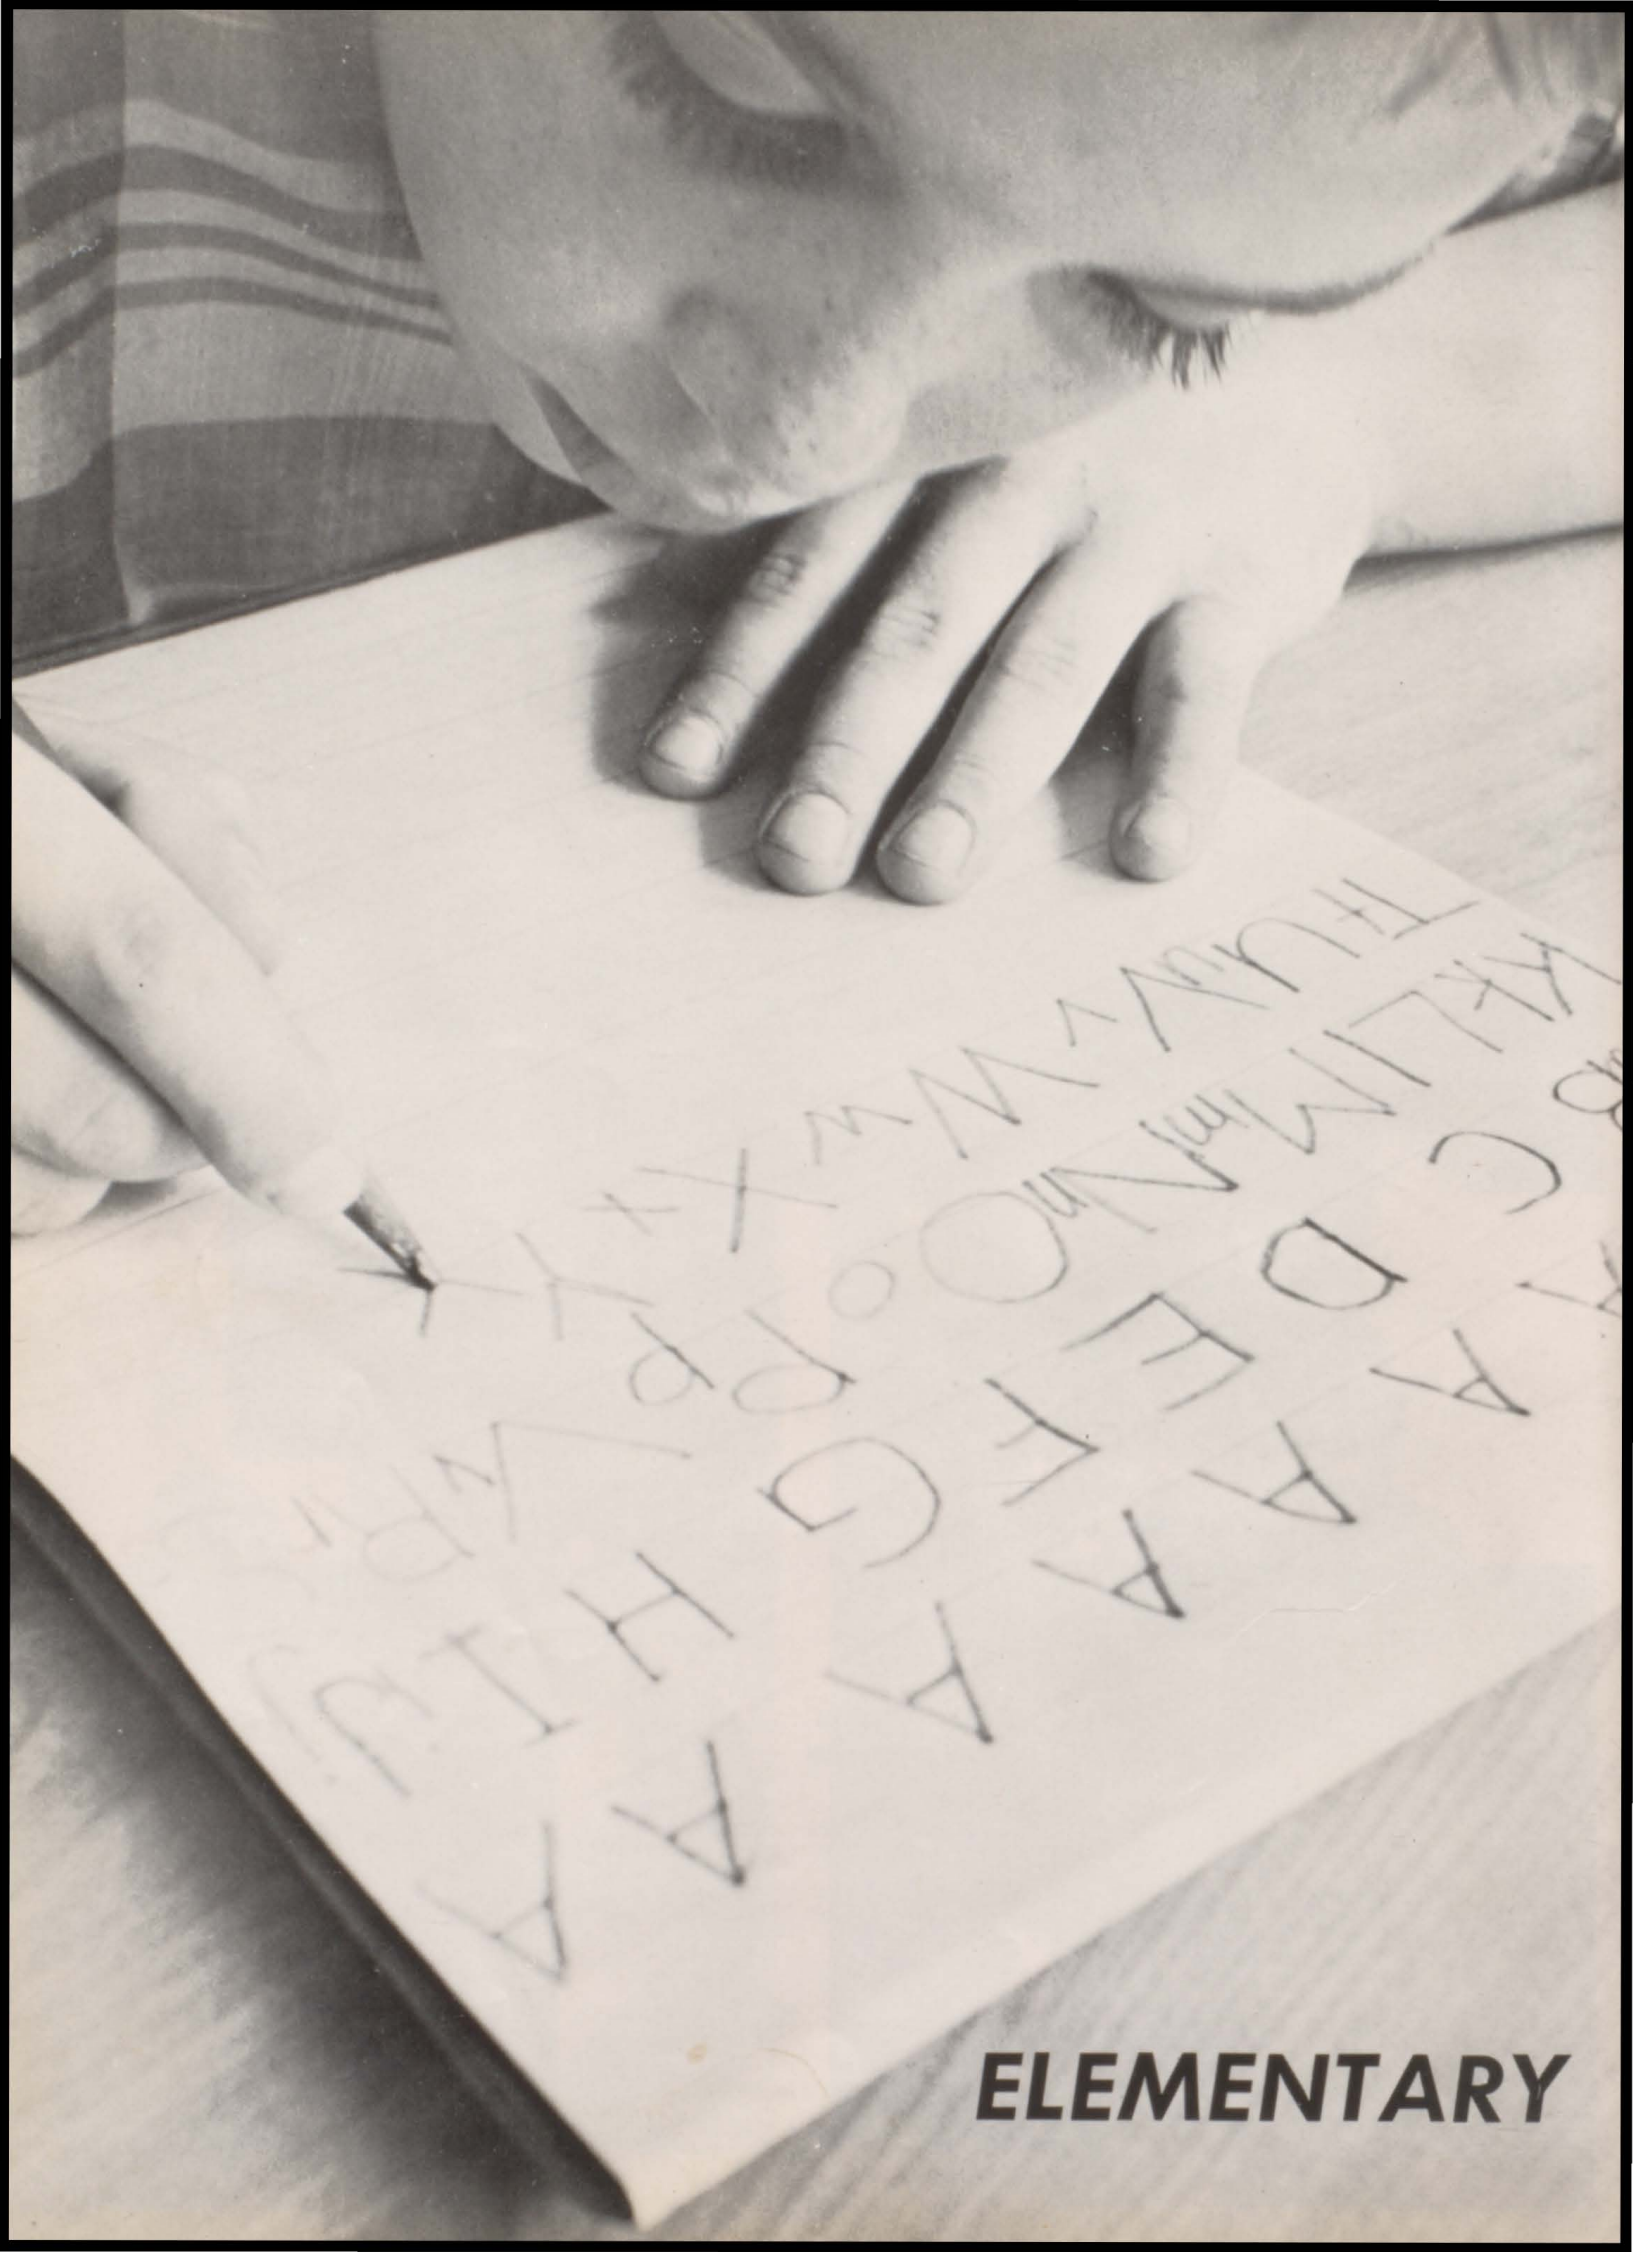 A A A A A A A
B C D E F G H I J j
K k L l M m N n O o P p R r
T t U u V v W w X x Y y
ELEMENTARY